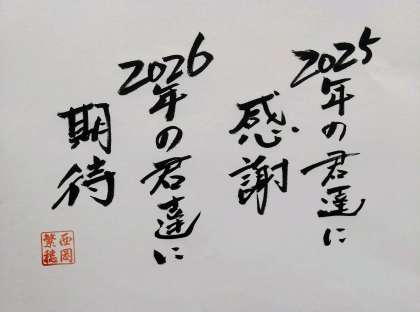 2025年の君達に
感謝
2026年の君達に
期待
西岡
繁穂